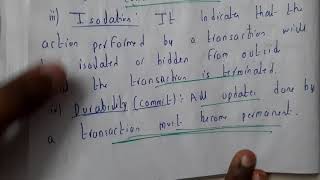 iii) Isolation: It indicates that the
action performed by a transaction will
isolated or hidden from outsid
the transaction is terminated.
Durability (commit): All updates done by
a transaction must become permanent.